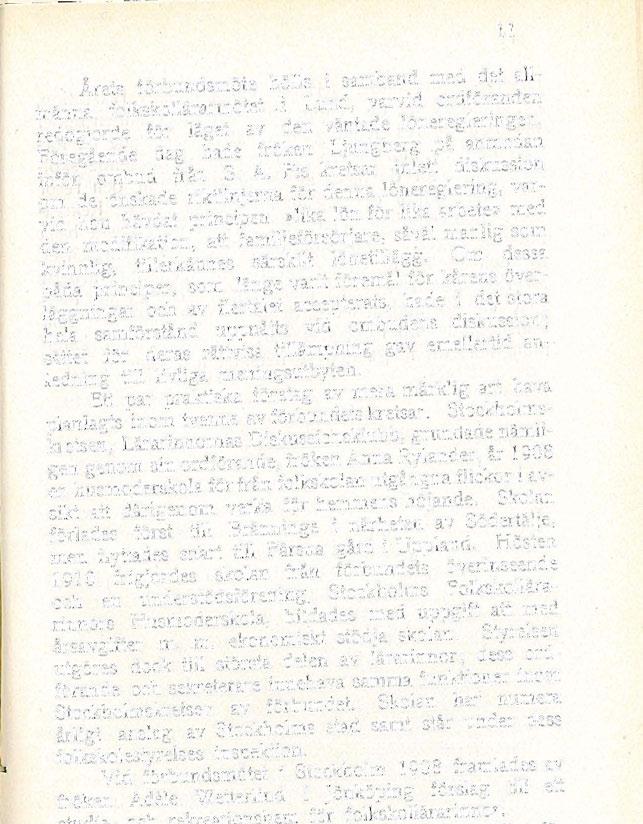 Årets förbundsmöte hölls i samband med det all-
männa folkskollärarmötet i Lund, varvid ordföranden
redogjorde för läget av den väntade löneregleringen.
Föregående dag hade fröken Ljungberg på anmodan
inför ombud från S. A. F:s kretsar inlett diskussion
om de önskade riktlinjerna för denna lönereglering, var-
vid hon hävdat principen »lika lön för lika arbete» med
den modifikation, att familjeförsörjare, såväl manlig som
kvinnlig, tillerkännes särskilt lönetillägg. Om dessa
båda principer, som länge varit föremål för kårens över-
läggningar och av flertalet accepterats, hade i det stora
hela samförstånd uppnåtts vid ombudens diskussion;
sättet för deras rättvisa tillämpning gav emellertid an-
ledning till livliga meningsutbyten.
Ett par praktiska företag av mera märklig art hava
planlagts inom tvenne av förbundets kretsar. Stockholms-
kretsen, Lärarinnornas Diskussionsklubb, grundade nämli-
gen genom sin ordförande, fröken Anna Rylander, år 1908
en husmoderskola för från folkskolan utgångna flickor i av-
sikt att därigenom verka för hemmens höjande. Skolan
förlades först till Bränninge i närheten av Södertälje,
men flyttades snart till gård i Uppland. Hösten
1910 frigjordes skolan från förbundets överinseende
och en understödsförening, Stockholms Folkskollära-
rinnors Husmoderskola, bildades med uppgift att med
årsavgifter m. m. ekonomiskt stödja skolan. Styrelsen
utgöres dock till största delen av lärarinnor, dess ord-
förande och sekreterare innehava samma funktioner inom
Stockholmskretsen av förbundet. Skolan har numera
årligt anslag av Stockholms stad samt står under dess
folkskolestyrelses inspektion.
Vid förbundsmötet i Stockholm 1908 framlades av
fröken Adèle Wetterlind i Jönköping förslag till ett
studie- och rekreationshem för folkskollärarinnor.